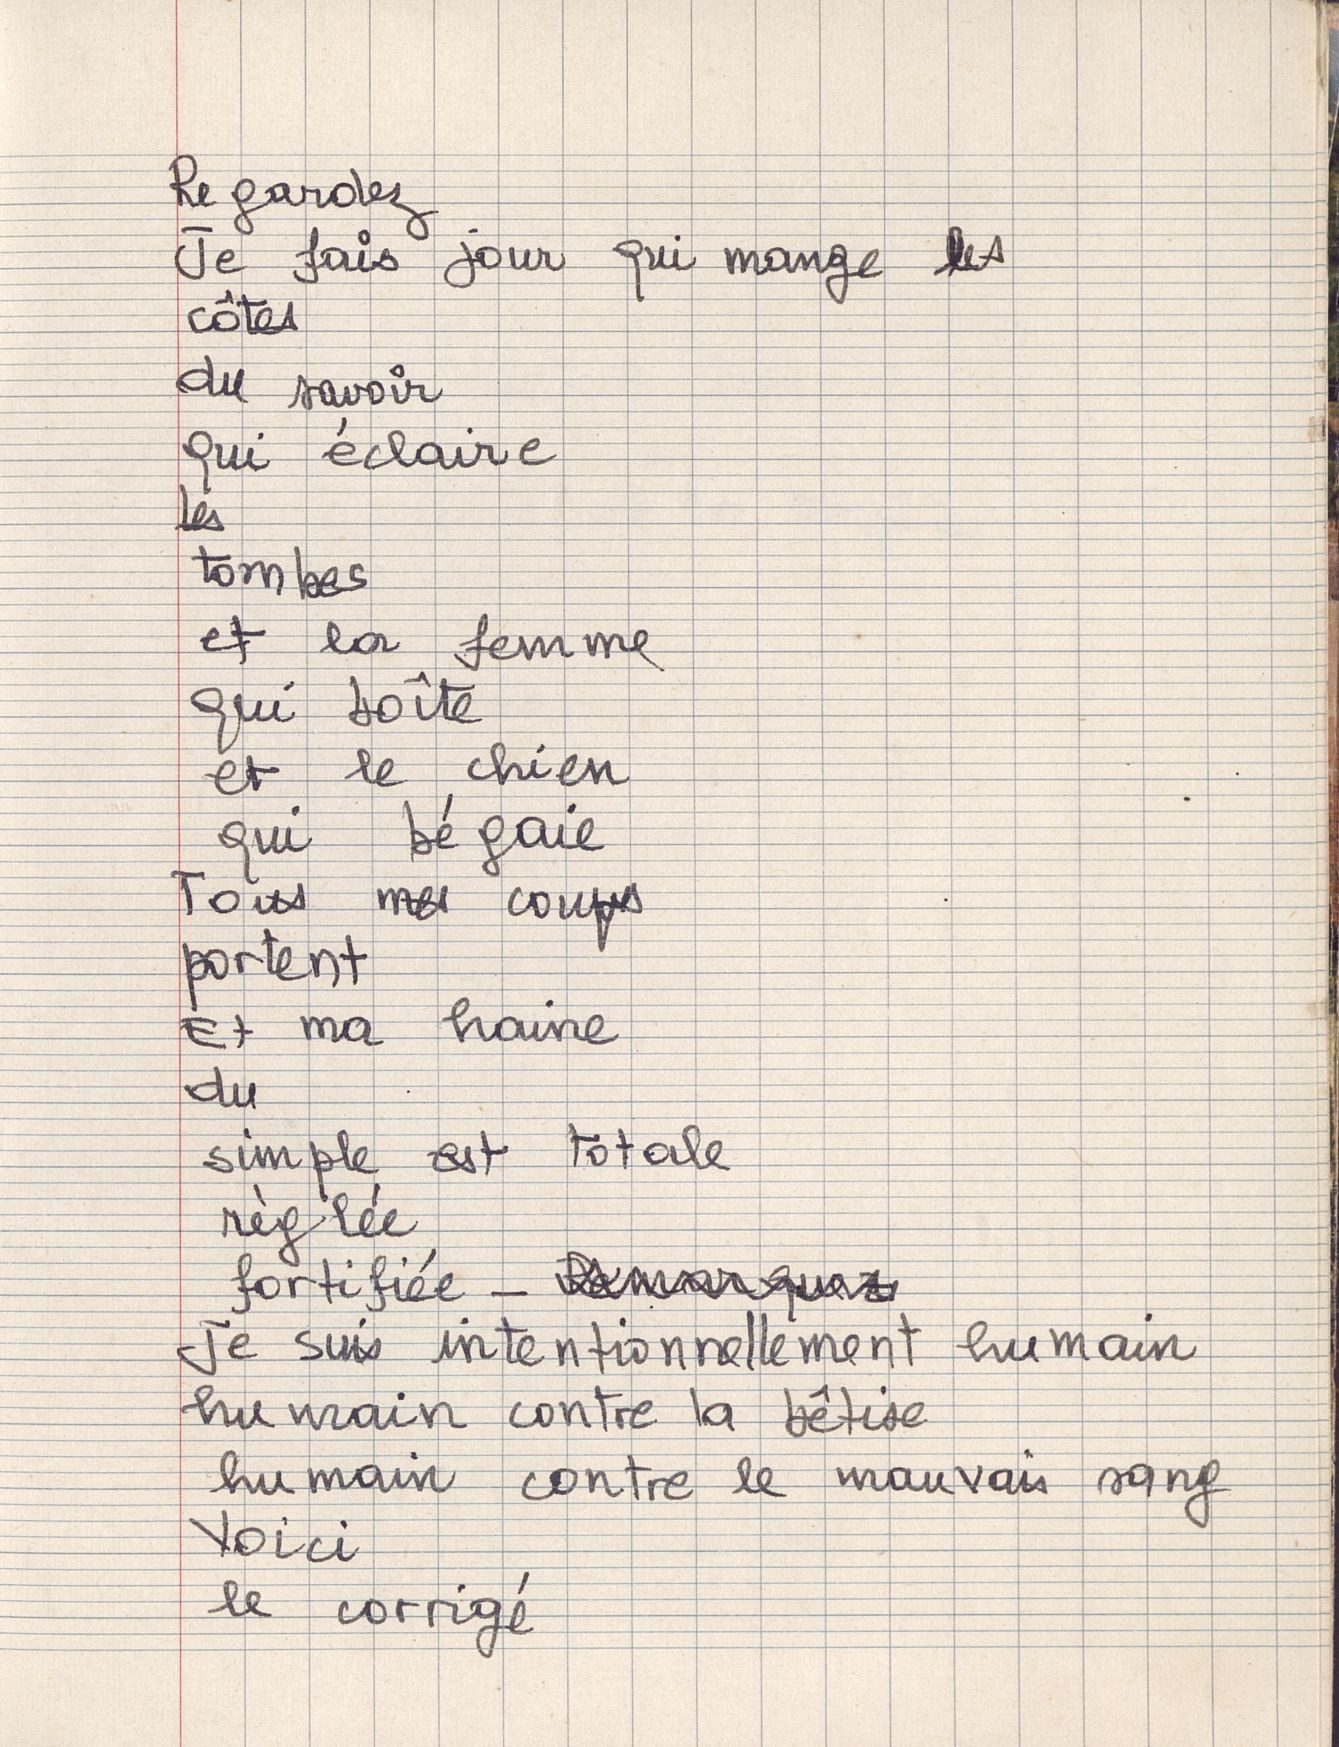 Regardez
Je fais jour qui mange les
côtes
du savoir
qui éclaire
les
tombes
et la femme
qui boîte
et le chien
qui bégaie
Tous mes coups
portent
Et ma haine
du
simple est totale
règlée
fortifiée - Remarquez
Je suis intentionnellement humain
humain contre la bêtise
humain contre le mauvais sang
Voici
le corrigé